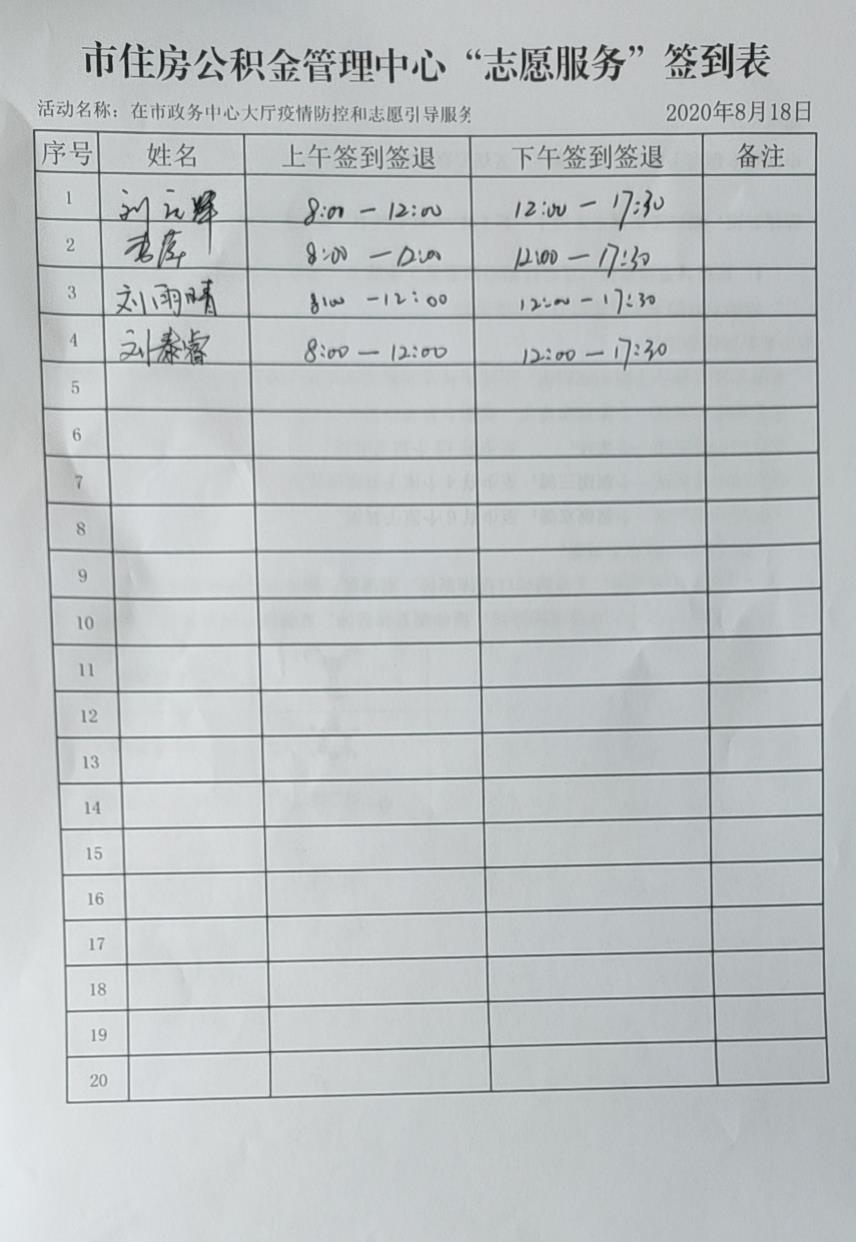 市住房公积金管理中心“志愿服务”签到表
活动名称：在市政务中心大厅疫情防控和志愿引导服务 2020年8月18日
序号 姓名 上午签到签退 下午签到签退 备注
1 刘元辉 8:00 — 12:00 12:00 — 17:30
2 8:00 — 12:00 12:00 — 17:30
3 刘雨晴 8:00 — 12:00 12:00 — 17:30
4 刘泰睿 8:00 — 12:00 12:00 — 17:30
5
6
7
8
9
10
11
12
13
14
15
16
17
18
19
20